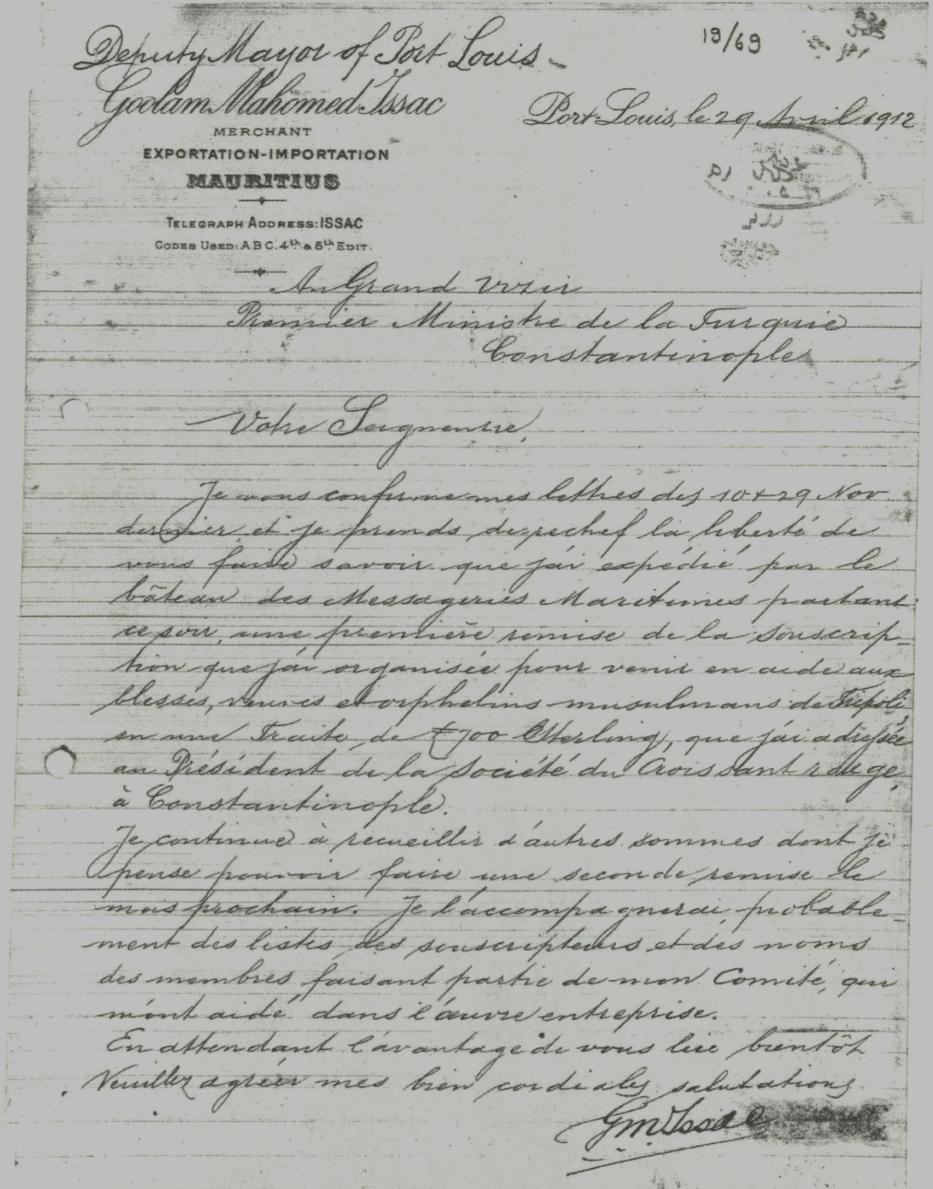 19/69
Deputy Mayor of Port Louis
Goolam Mahomed Issac
Port-Louis, le 29 Avril 1912
MERCHANT
EXPORTATION-IMPORTATION
MAURITIUS
TELEGRAPH ADDRESS: ISSAC
CODES USED: A B C. 4th & 5th EDIT.
Au Grand Vizir
Premier Ministre de la Turquie
Constantinople
Votre Seigneurie,
Je vous confirme mes lettres des 10 & 29 Nov
dernier et je prends derechef la liberté de
vous faire savoir que j'ai expédié par le
bâteau des Messageries Maritimes partant
ce soir, une première remise de la souscrip-
tion que j'ai organisée pour venir en aide aux
blessés, veuves et orphelins musulmans de Tripoli
en une Traite de £700 Sterling, que j'ai adressée
au Président de la Société du Croissant rouge,
à Constantinople.
Je continue à recueillir d'autres sommes dont je
pense pouvoir faire une seconde remise le
mois prochain. Je l'accompagnerai probable-
ment des listes des souscripteurs et des noms
des membres faisant partie de mon Comité, qui
m'ont aidé dans l'œuvre entreprise.
En attendant l'avantage de vous lire bientôt
Veuillez agréer mes bien cordiales salutations
GM Issac